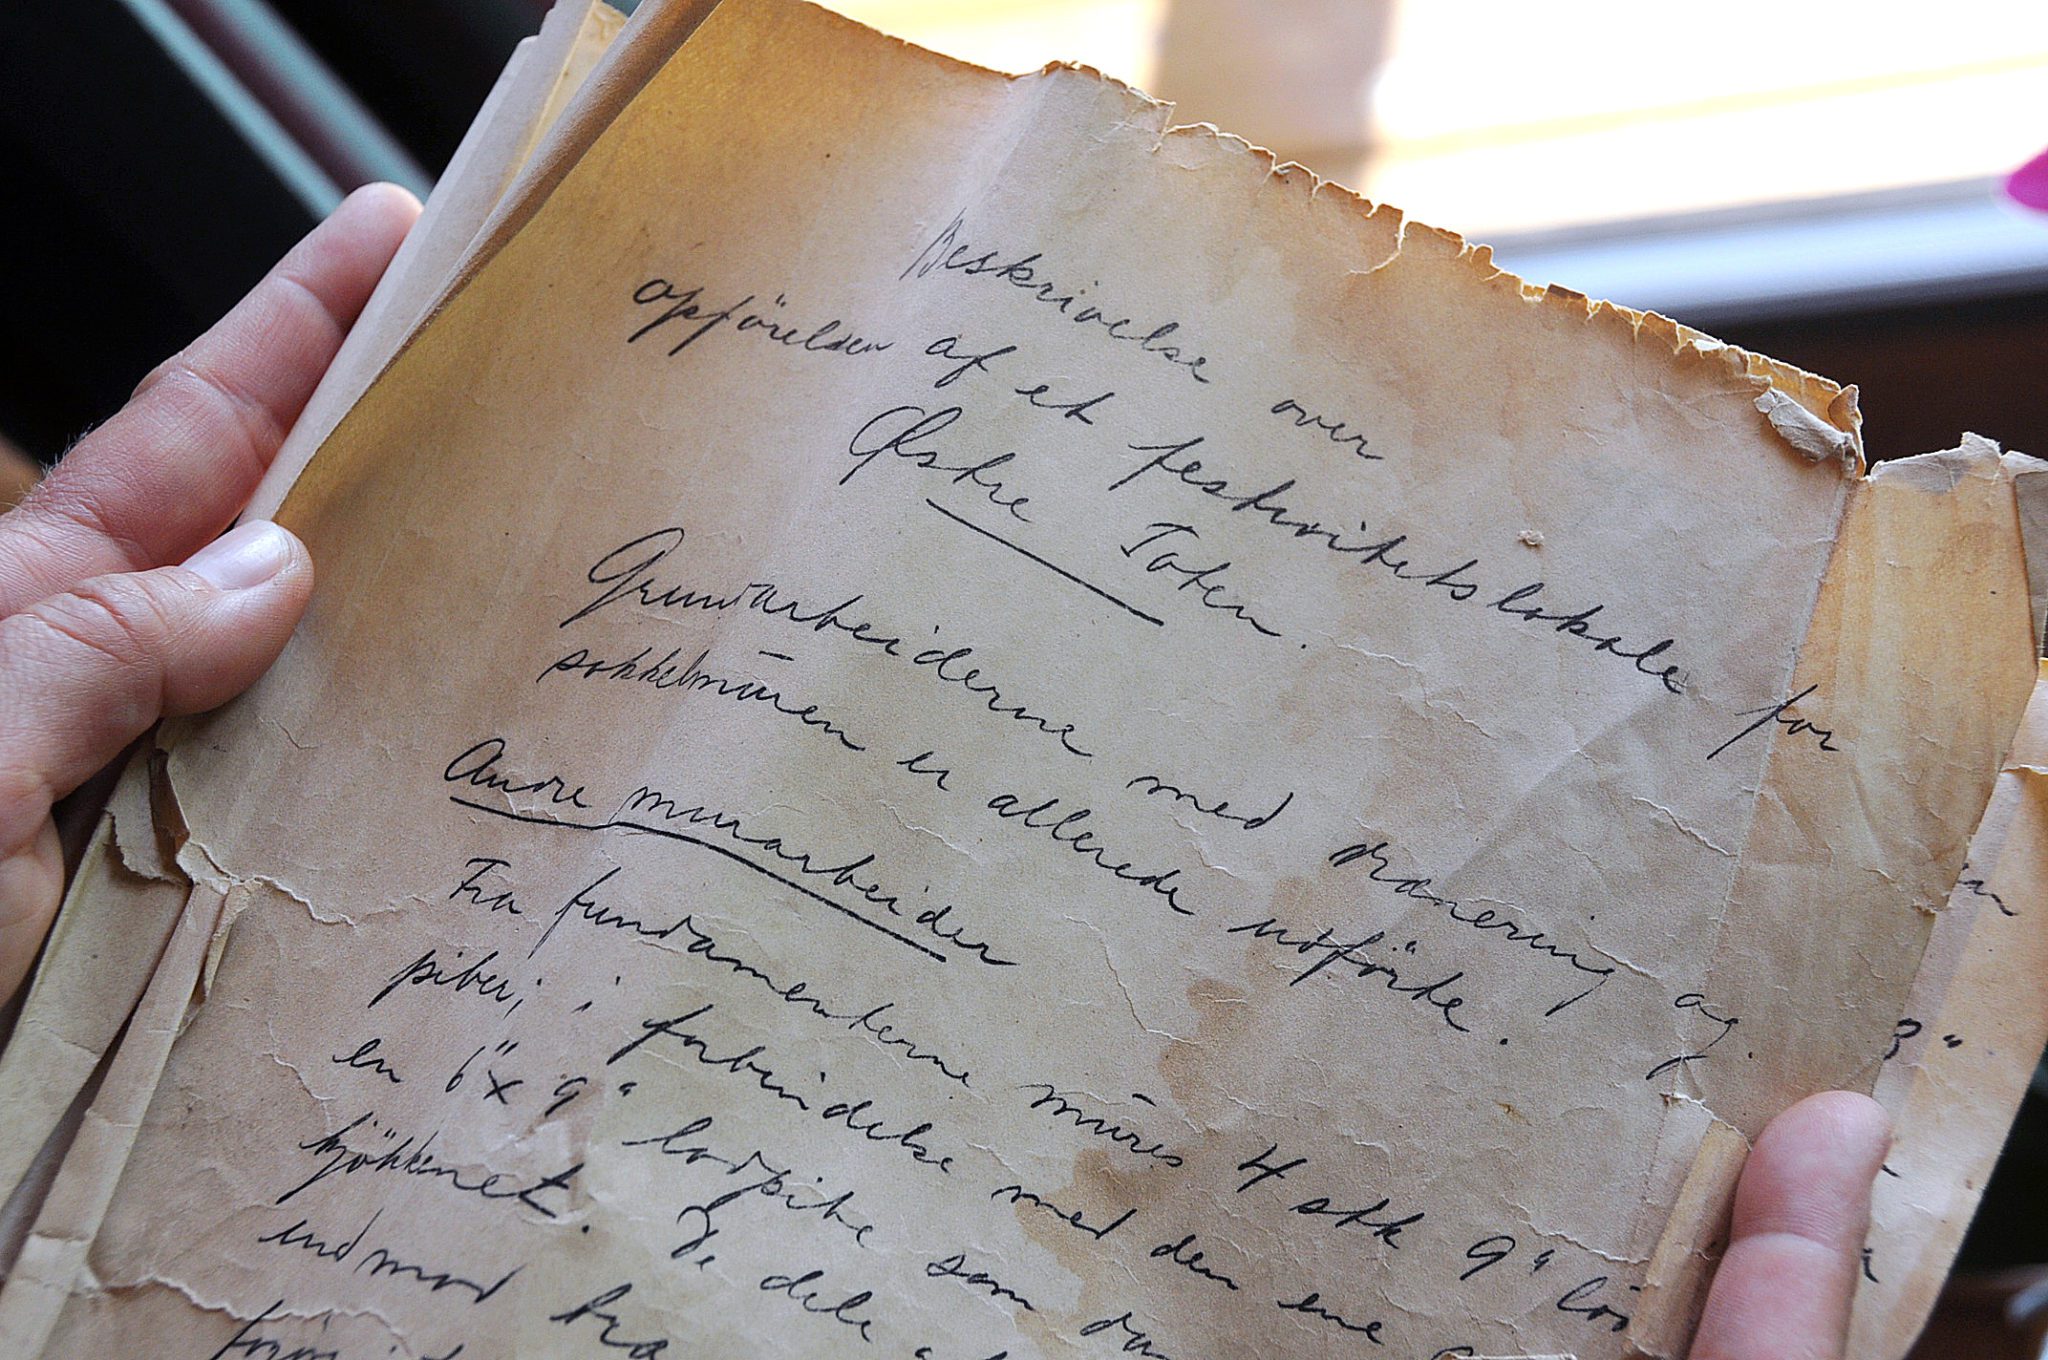 Beskrivelse over
opførelsen af et festivitetslokale for
Østre Toten.
Grundarbeiderne med dranering og
sokkelmūren er allerede udførte.
Andre murarbeider
Fra fundamenterne mūres 4 stk 9"
piber; i forbindelse med den ene
en 6"x 9" lodpibe som
kjøkkenet. De dele
indmod træ
3"